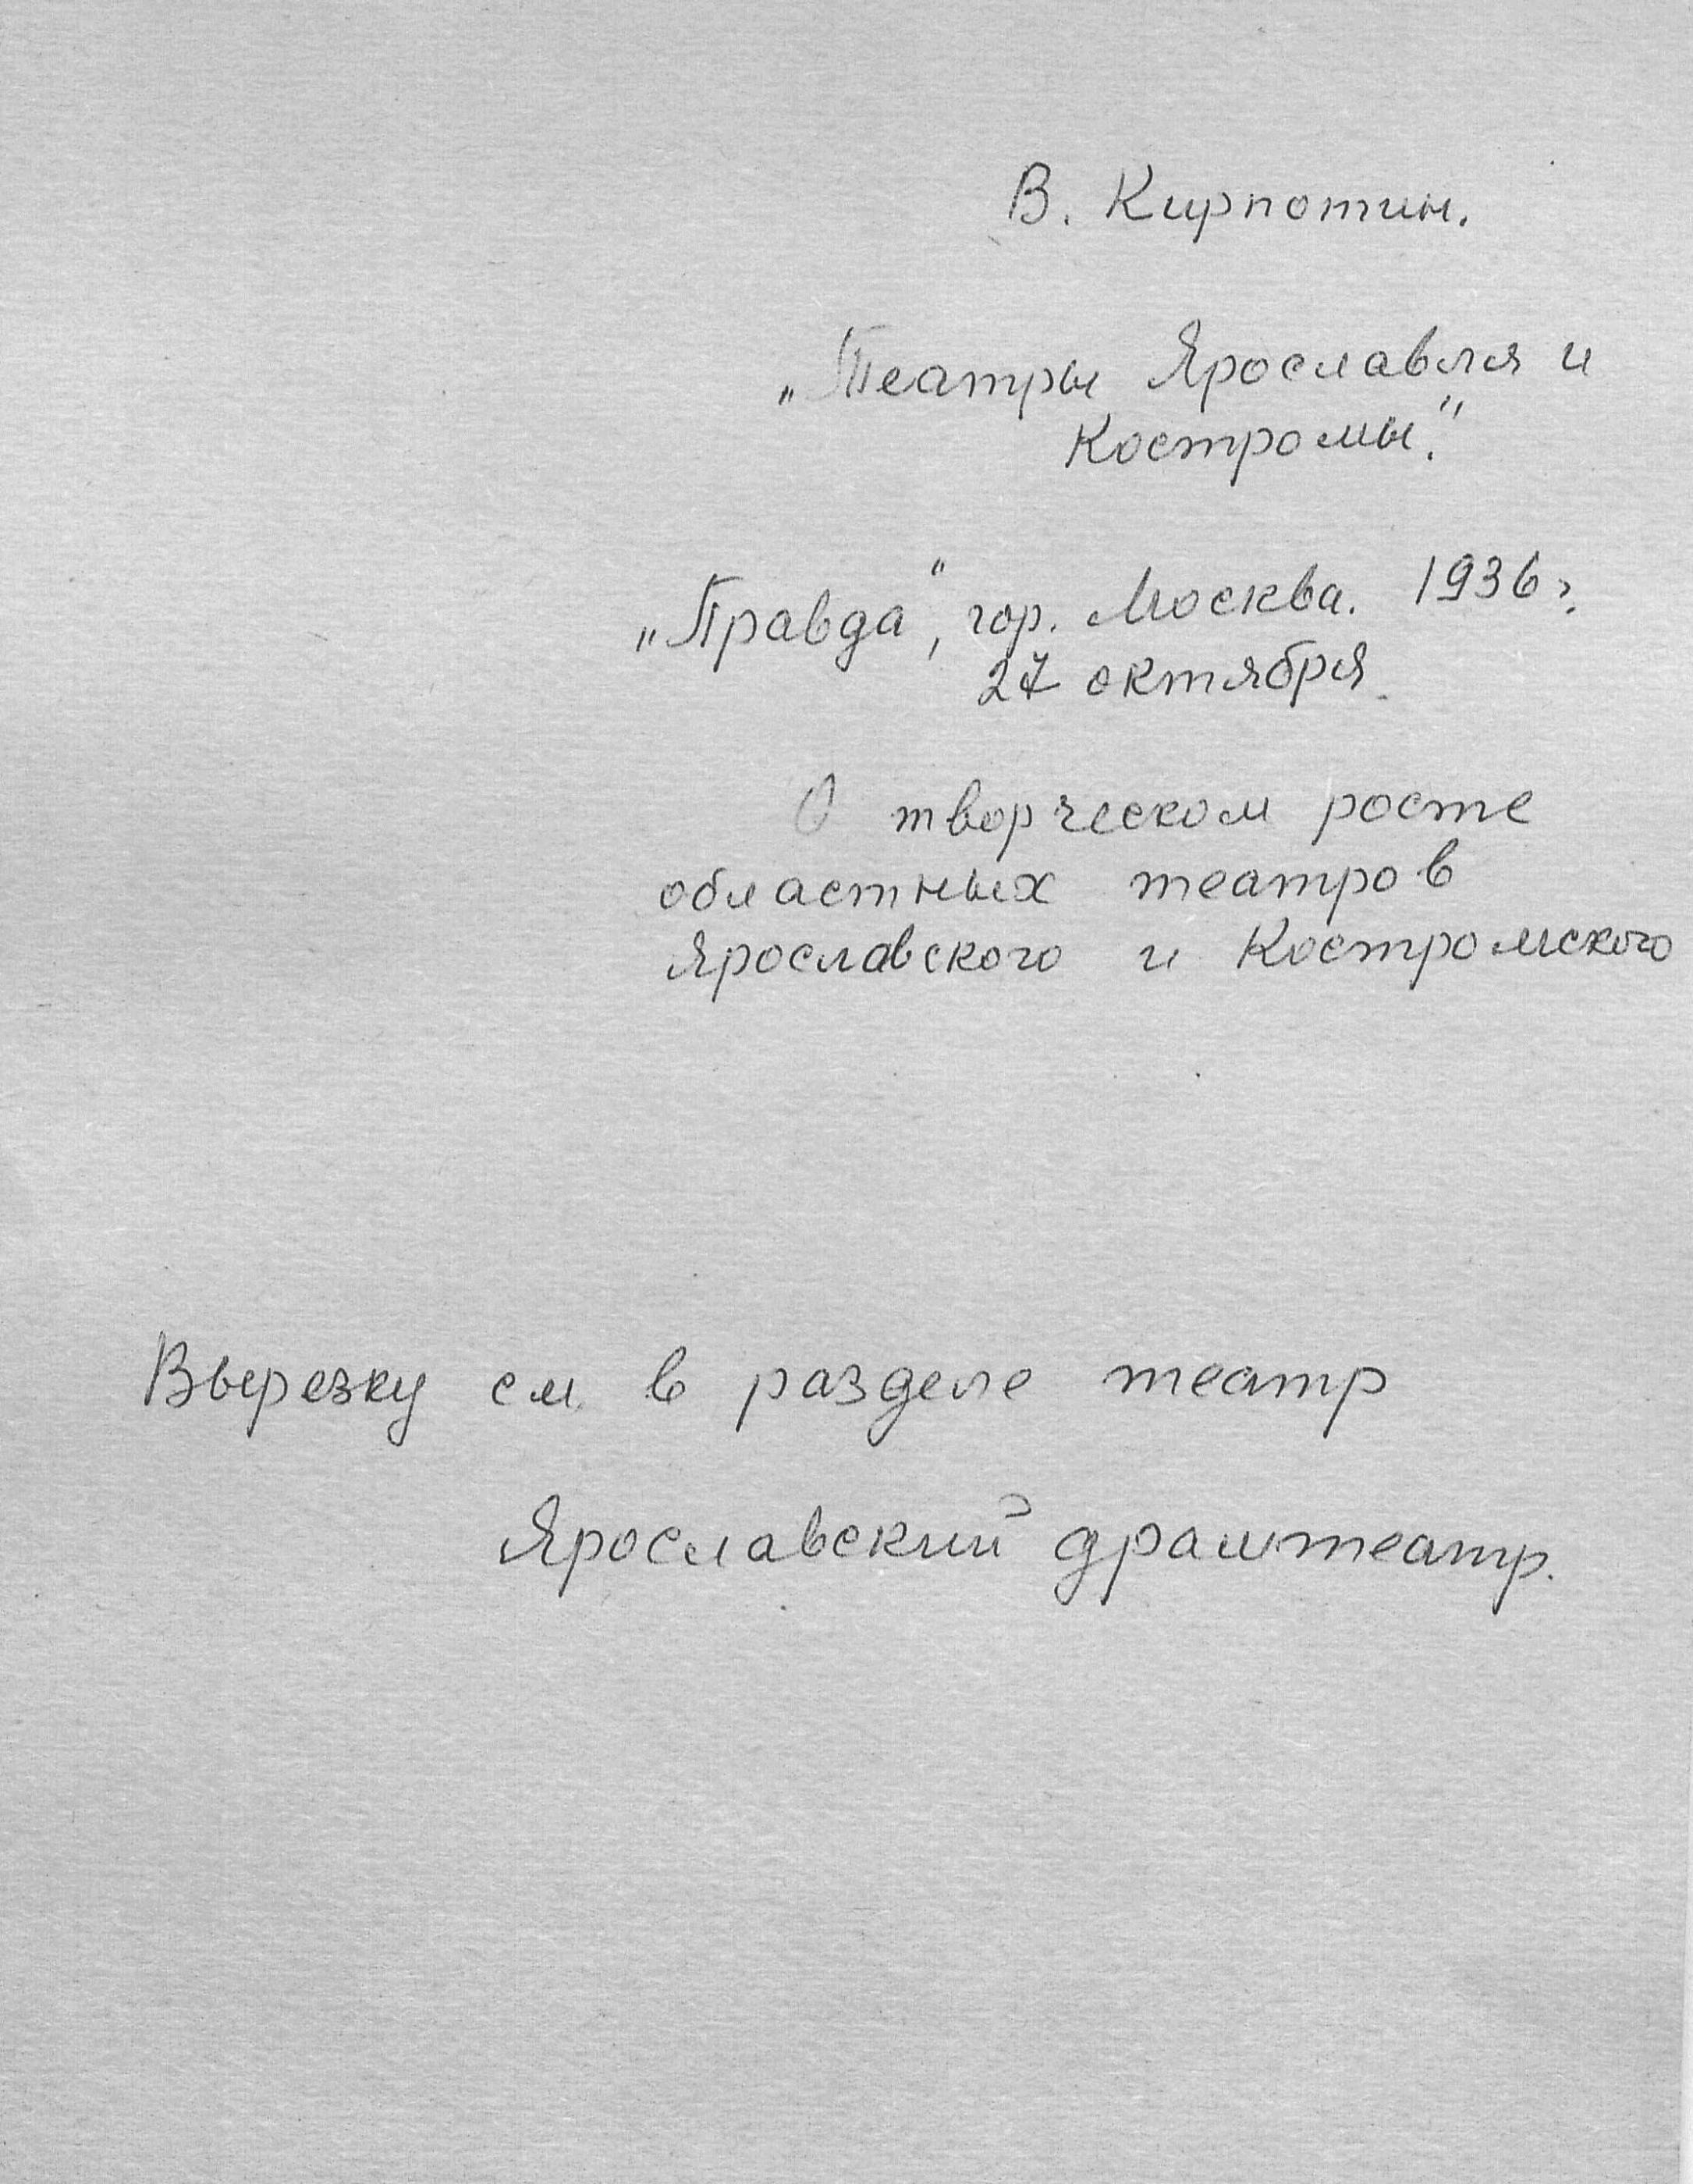 В. Кирпотин.
„Театры Ярославля и
Костромы."
„Правда", гор. Москва. 1936 г.
27 октября.
О творческом росте
областных театров
Ярославского и Костромского
Вырезку см. в разделе театр
Ярославский драмтеатр.